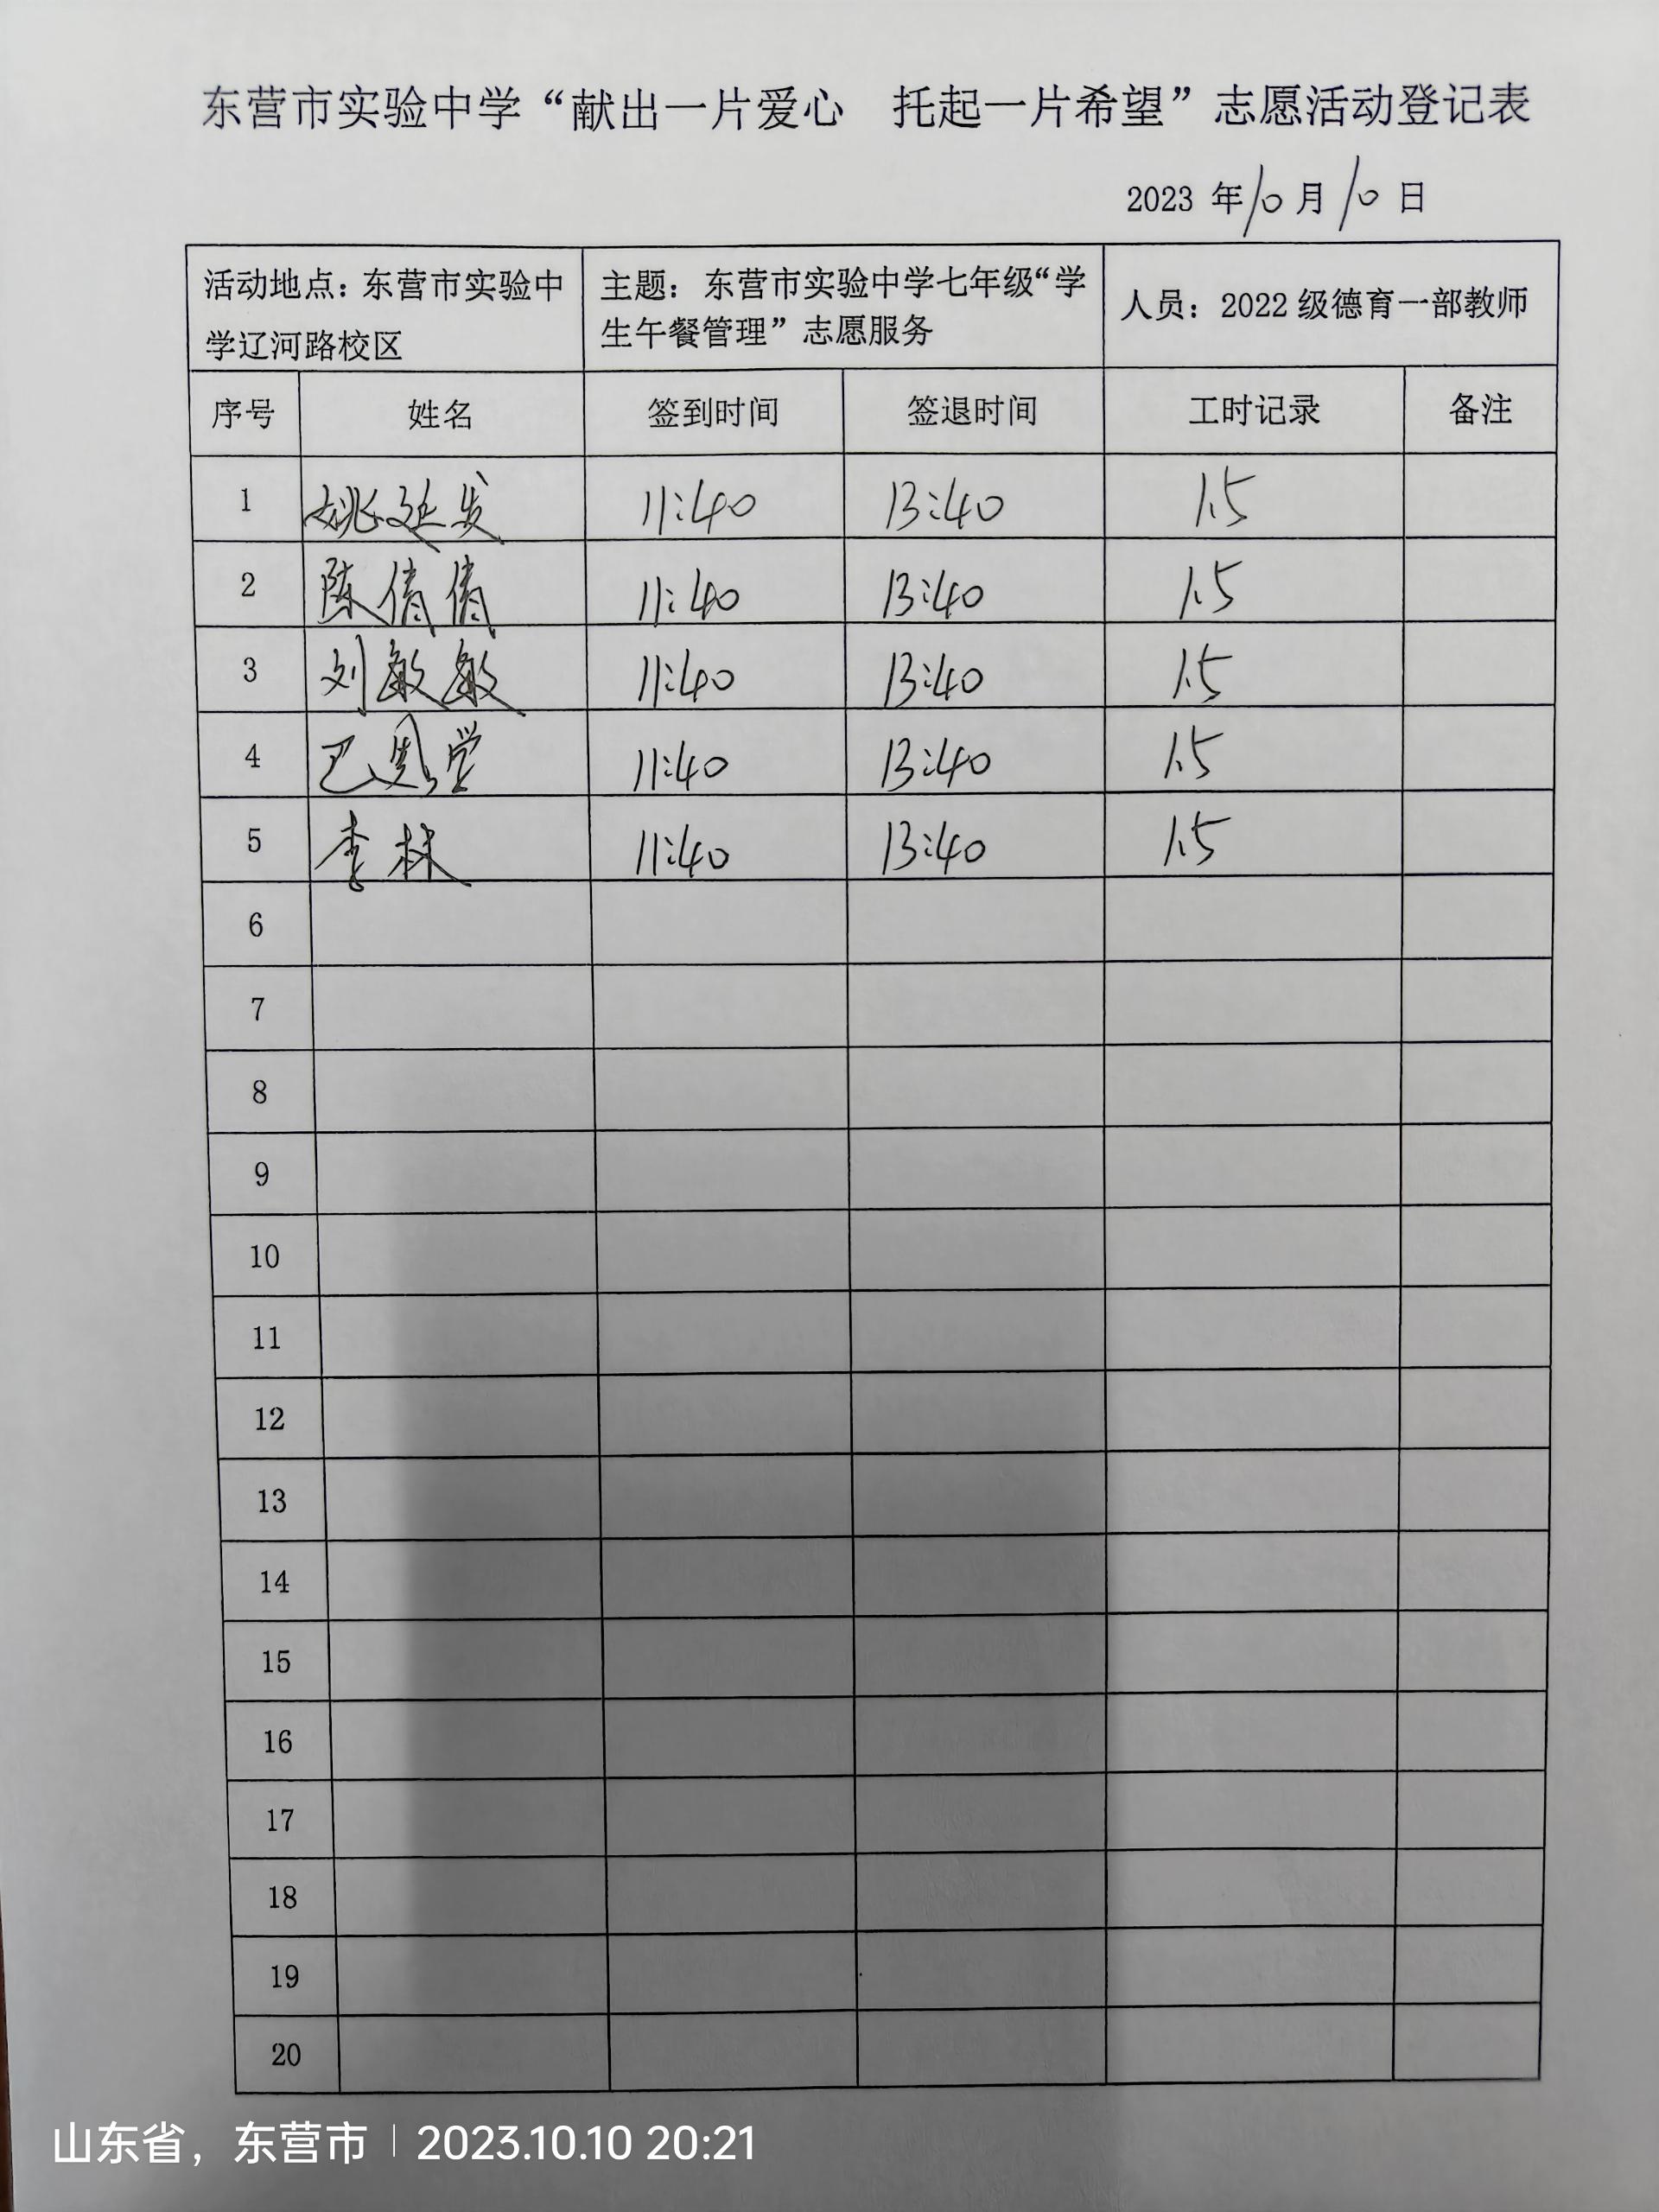 东营市实验中学“献出一片爱心 托起一片希望”志愿活动登记表
2023 年 10 月 10 日
活动地点：东营市实验中
学辽河路校区
主题：东营市实验中学七年级“学
生午餐管理”志愿服务
人员：2022 级德育一部教师
序号 姓名 签到时间 签退时间 工时记录 备注
1 姚延发 11:40 13:40 1.5
2 陈倩倩 11:40 13:40 1.5
3 刘敏敏 11:40 13:40 1.5
4 巴 堂 11:40 13:40 1.5
5 李林 11:40 13:40 1.5
6
7
8
9
10
11
12
13
14
15
16
17
18
19
20
山东省，东营市 | 2023.10.10 20:21